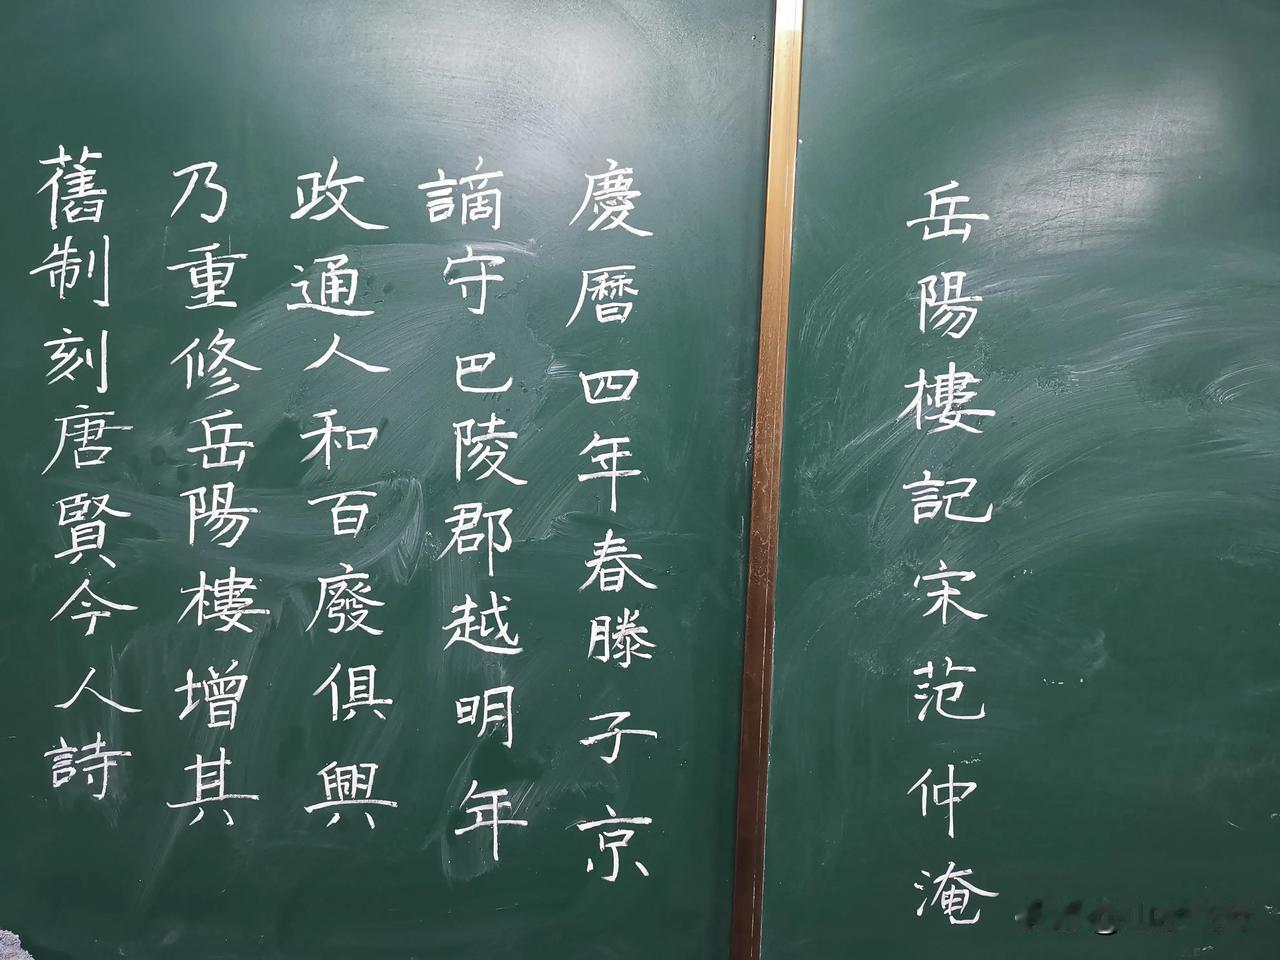 岳陽樓記宋范仲淹
慶曆四年春滕子京
謫守巴陵郡越明年
政通人和百廢俱興
乃重修岳陽樓增其
舊制刻唐賢今人詩